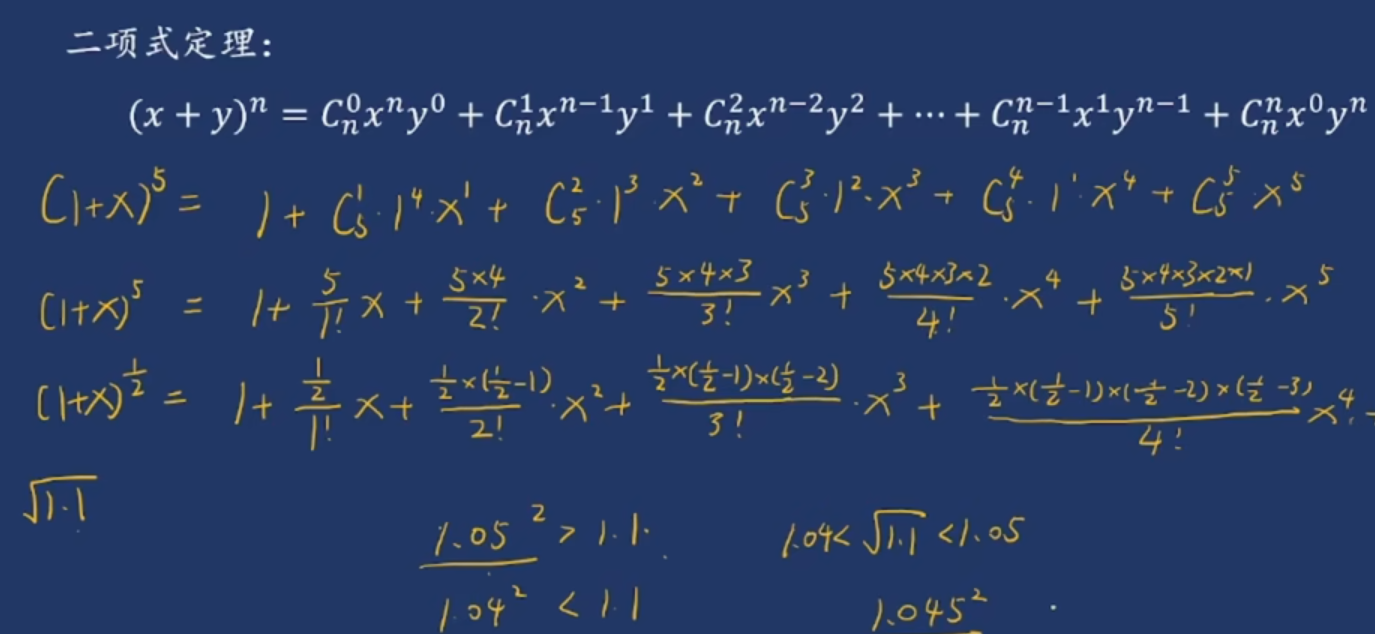 二项式定理:
(x + y)ⁿ = C⁰ₙxⁿy⁰ + C¹ₙxⁿ⁻¹y¹ + C²ₙxⁿ⁻²y² + ⋯ + Cⁿ⁻¹ₙx¹yⁿ⁻¹ + Cⁿₙx⁰yⁿ
(1+x)⁵ = 1 + C¹₅·1⁴·x¹ + C²₅·1³·x² + C³₅·1²·x³ + C⁴₅·1¹·x⁴ + C⁵₅x⁵
(1+x)⁵ = 1 + 5/1! x + 5×4/2! ·x² + 5×4×3/3! x³ + 5×4×3×2/4! ·x⁴ + 5×4×3×2×1/5! ·x⁵
(1+x)^½ = 1 + ½/1! x + ½×(½-1)/2! ·x² + ½×(½-1)×(½-2)/3! ·x³ + ½×(½-1)×(½-2)×(½-3)/4! x⁴ +
√1.1
1.05² > 1.1. 1.04 < √1.1 < 1.05
1.04² < 1.1 1.045²